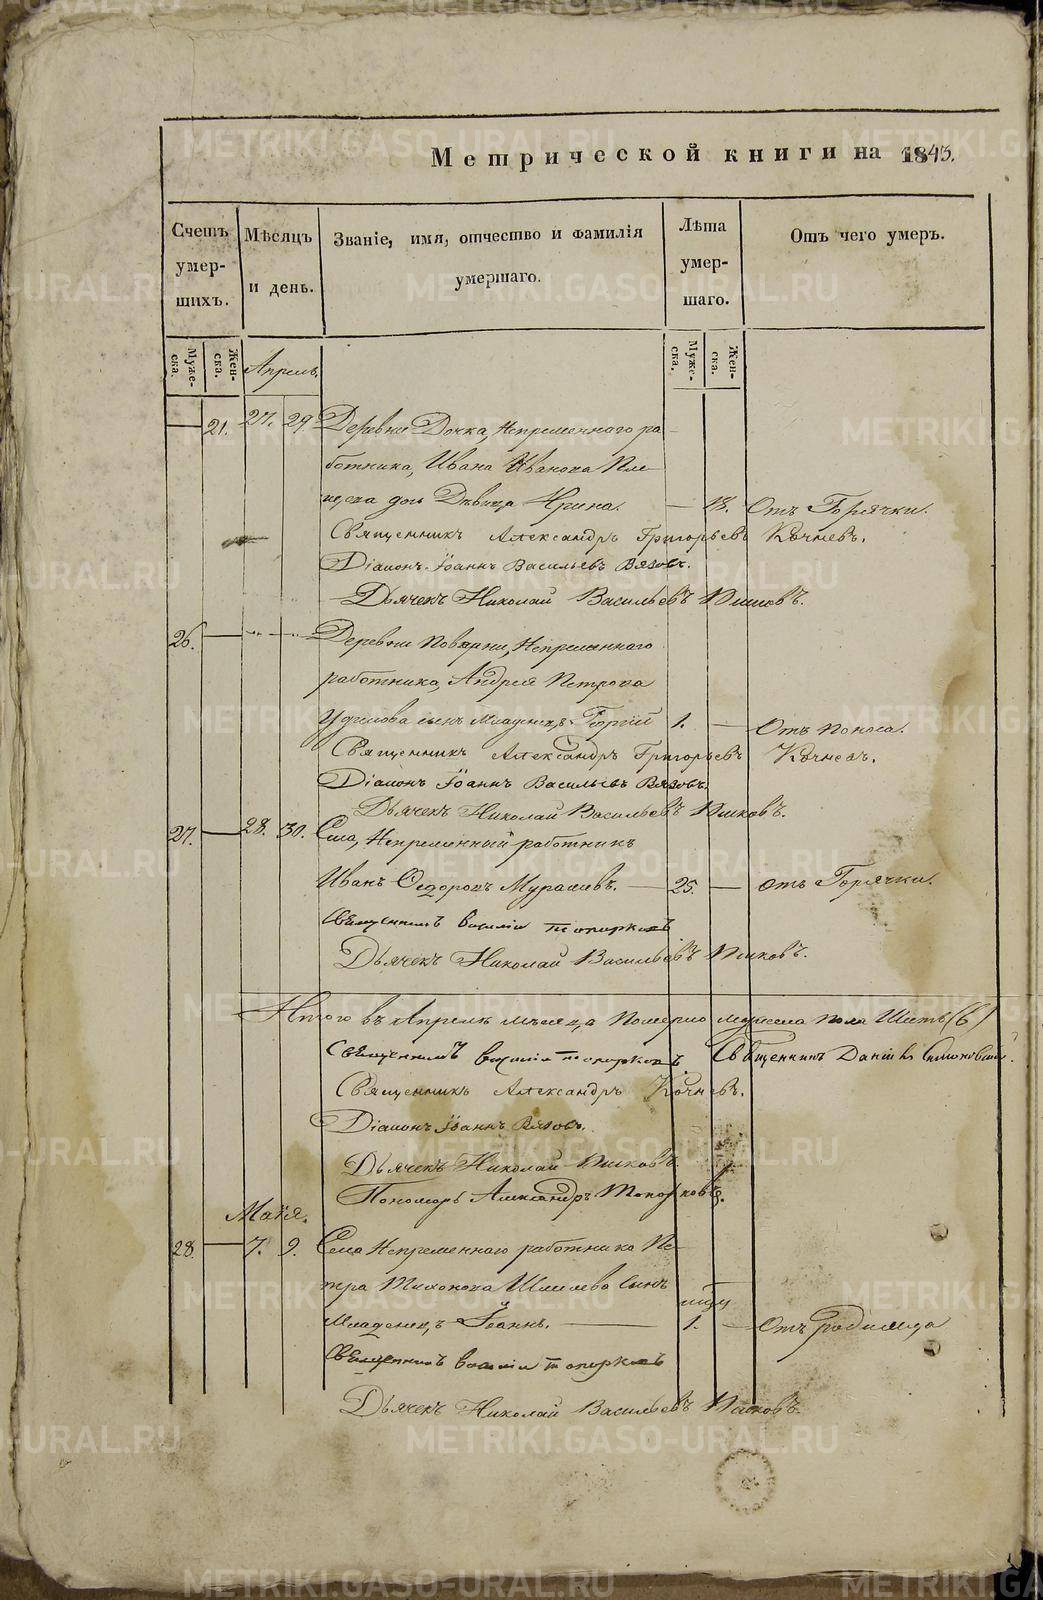 Метрической книги на 1845.
Счетъ умер- шихъ.
Мѣсяцъ и день.
Званіе, имя, отчество и фамилія умершаго.
Лѣта умер- шаго.
Отъ чего умеръ.
Муже- ска.
Жен- ска.
Муже- ска.
Жен- ска.
Апрель.
21. 27. 29. Деревни Дочка, Непременнаго ра
ботника, Ивана Иванова
дочь Девица Ирина. — 18. Отъ Горячки.
Священникъ Александръ Григорьевъ Кочневъ.
Діаконъ Іоаннъ Васильевъ Вязовъ.
Дьячекъ Николай Васильевъ
26. Деревни Поварни, Непременнаго
работника, Андрея Петрова
Удилова сынъ Младенецъ Георгій 1. — Отъ поноса.
Священникъ Александръ Григорьевъ Кочневъ.
Діаконъ Іоаннъ Васильевъ Вязовъ.
Дьячекъ Николай Васильевъ
27. 28. 30. Села, Непременный работникъ
Иванъ Федоровъ Мурашевъ. — 25. — отъ Горячки.
Священникъ Василій Топорковъ
Дьячекъ Николай Васильевъ
Итого въ Апреле месяце Померло мужеска пола Шесть (6)
Священникъ Василій Топорковъ. Священникъ Даніилъ
Священникъ Александръ Кочневъ.
Діаконъ Іоаннъ Вязовъ.
Дьячекъ Николай
Пономарь Александръ Топорковъ.
Маія.
28. 7. 9. Села Непременнаго работника Пе-
тра Тихонова сынъ
Младенецъ Іоаннъ. — 1. — Отъ родимца
Священникъ Василій Топорковъ
Дьячекъ Николай Васильевъ
METRIKI.GASO-URAL.RU